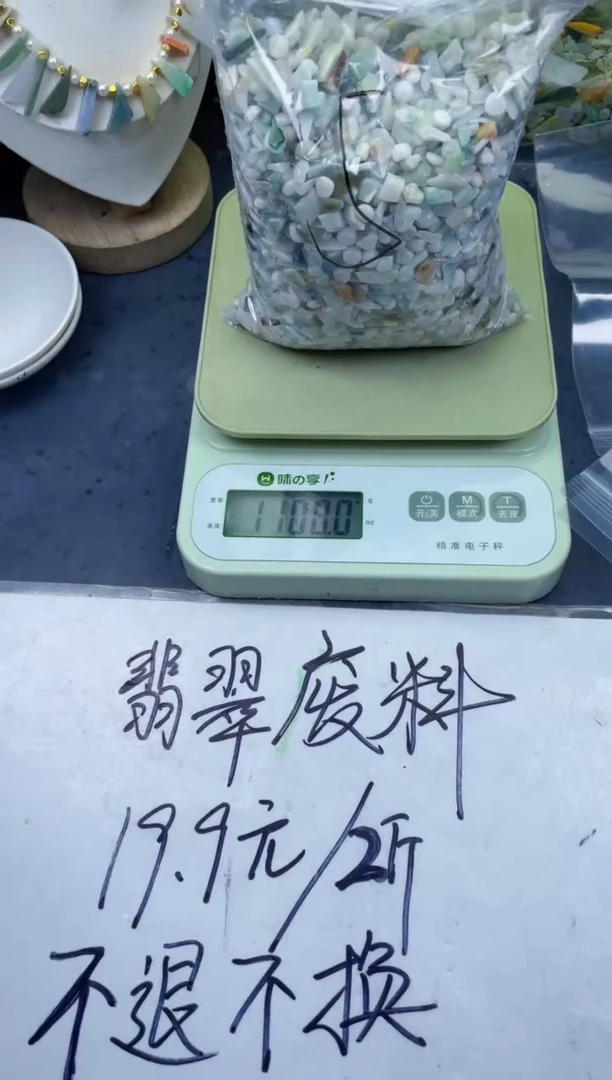 味の享
重率
g
1108.0
去皮
oz
开/关
M
模式
T
去皮
精准电子秤
翡翠废料
19.9元/2斤
不退不换